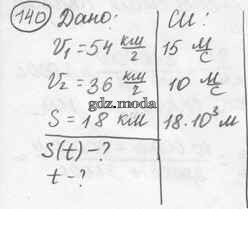 140 Дано: СИ:
V₁ = 54 км/ч 15 м/с
V₂ = 36 км/ч 10 м/с
S = 18 км 18·10³ м
S(t) – ?
t – ?
gdz.moda